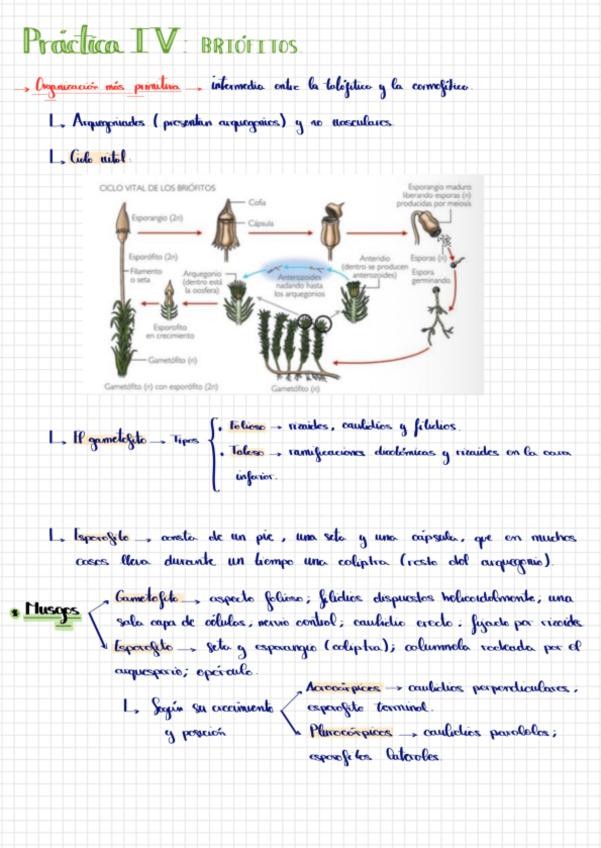 Práctica IV: BRIÓFITOS
→ Organización más primitiva → intermedia entre la talofítica y la cormofítica.
↳ Arquegoniadas (presentan arquegonios) y no vasculares.
↳ Ciclo vital:
CICLO VITAL DE LOS BRIÓFITOS
Esporangio (2n)
Cofia
Cápsula
Esporangio maduro
liberando esporas (n)
producidas por meiosis
Esporófito (2n)
Filamento
o seta
Arquegonio
(dentro está
la oosfera)
Anterozoides
nadando hasta
los arquegonios
Anteridio
(dentro se producen
anterozoides)
Esporas (n)
Espora
germinando
Esporofito
en crecimiento
Gametófito (n)
Gametófito (n) con esporófito (2n)
Gametófito (n)
↳ El gametofito → Tipos
• Folioso → rizoides, caulidios y filidios.
• Taloso → ramificaciones dicotómicas y rizoides en la cara
inferior.
↳ Esporofito → consta de un pie, una seta y una cápsula, que en muchos
casos lleva durante un tiempo una caliptra (resto del arquegonio).
• Musgos
Gametofito → aspecto folioso; filidios dispuestos helicoidalmente, una
sola capa de células, nervio central; caulidio erecto; fijado por rizoides
Esporofito → seta y esporangio (caliptra); columnela rodeada por el
arquesporio; opérculo.
↳ Según su crecimiento
y posición
Acrocárpicos → caulidios perpendiculares,
esporofito terminal.
Pleurocárpicos → caulidios paralelos;
esporofitos laterales.